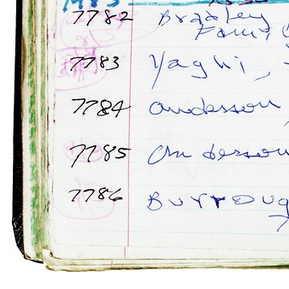 7782 Bradley
Fam
7783 Yaghi,
7784 anderson,
7785 Anderson
7786 Burroug